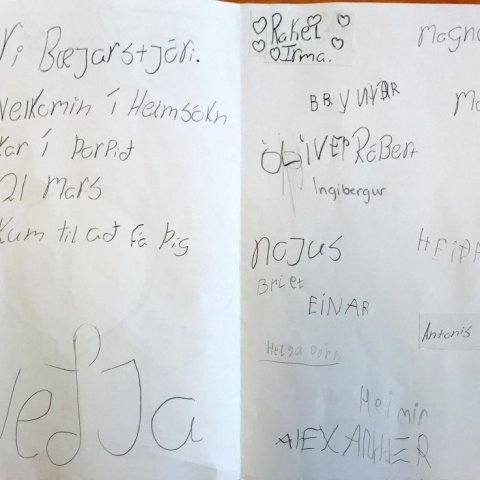 ri Bæjarstjóri.
Velkomin í Heimsókn
kar í Þorpið
21 Mars
kum til að fá þig
Veðja
Rakel
Irma.
Magn
Ma
ÓLIVER Róbert
Ingibergur
nojus
HEIÐ
Bríet
EINAR
Antonis
Helga Dóra
Heimir
ALEXANDER